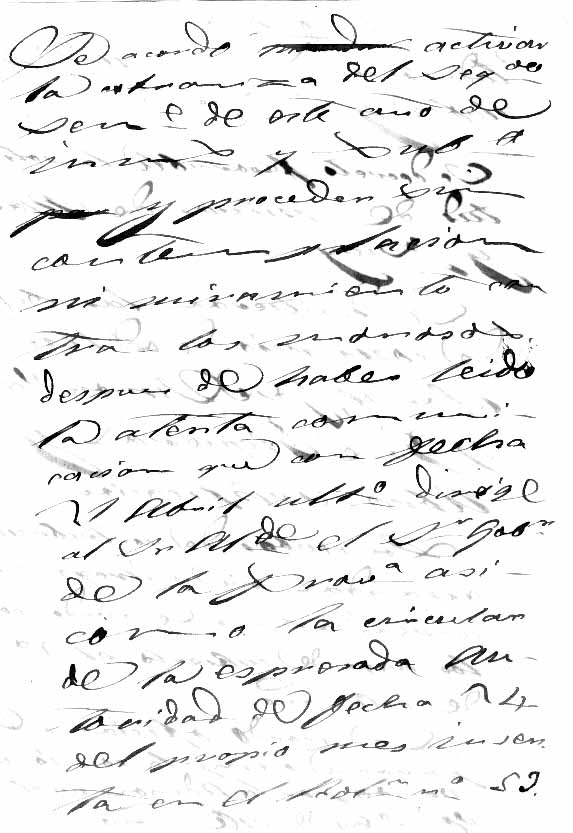 Se acordo activar
la cobranza del seg.do
sem.e de este año de
inmb y Subs
y proceder sin
contemplacion
ni miramiento con
tra los morosos.
despues de haber leido
la atenta comuni-
cacion que con fecha
21 Abril ult.o dirige
al Sr Alde el Sr Gobr
de la Prova asi-
como la circular
de la espresada Au-
toridad de fecha 24
del propio mes inser
ta en el Boln no 53.